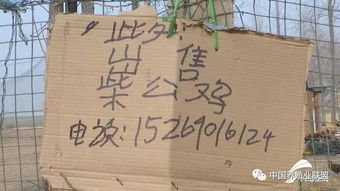 此处
出售
柴公鸡
电话:15269016124
中国养殖业联盟